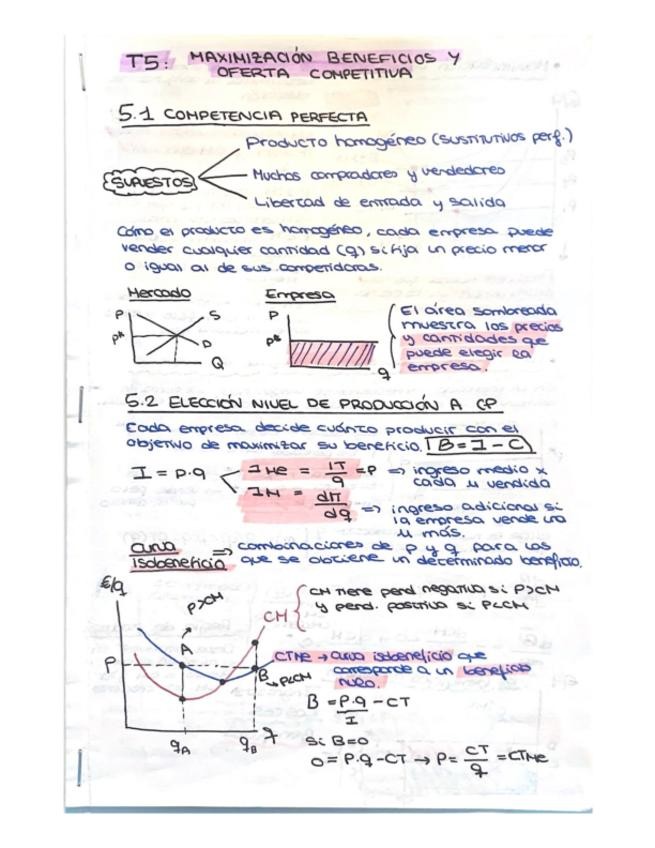 T5: MAXIMIZACIÓN BENEFICIOS Y
OFERTA COMPETITIVA
5.1 COMPETENCIA PERFECTA
SUPUESTOS
Producto homogéneo (SUSTITUTIVOS perf.)
Muchos compradores y vendedores
Libertad de entrada y salida
Cómo el producto es homogéneo, cada empresa puede
vender cualquier cantidad (q) si fija un precio menor
o igual al de sus competidoras.
Mercado
P
S
P*
D
Q
Empresa
P
P*
q
El área sombreada
muestra los precios
y cantidades que
puede elegir la
empresa.
5.2 ELECCIÓN NIVEL DE PRODUCCIÓN A CP
Cada empresa decide cuánto producir con el
objetivo de maximizar su beneficio. B = I - C
I = P.q
IMe = IT/q = P => ingreso medio x
cada u vendida
IM = dIT/dq => ingreso adicional si
la empresa vende una
u más.
Curva
Isobeneficio => combinaciones de P y q para las
que se obtiene un determinado beneficio.
€/q
P>CM
A
CM
CM tiene pend negativa si P>CM
y pend. positiva si P<CM
P
B
P<CM
CTMe → curva isobeneficio que
corresponde a un beneficio
nulo.
B = P.q - CT
I
qA
qB
q
Si B=0
0 = P.q - CT → P = CT/q = CTMe